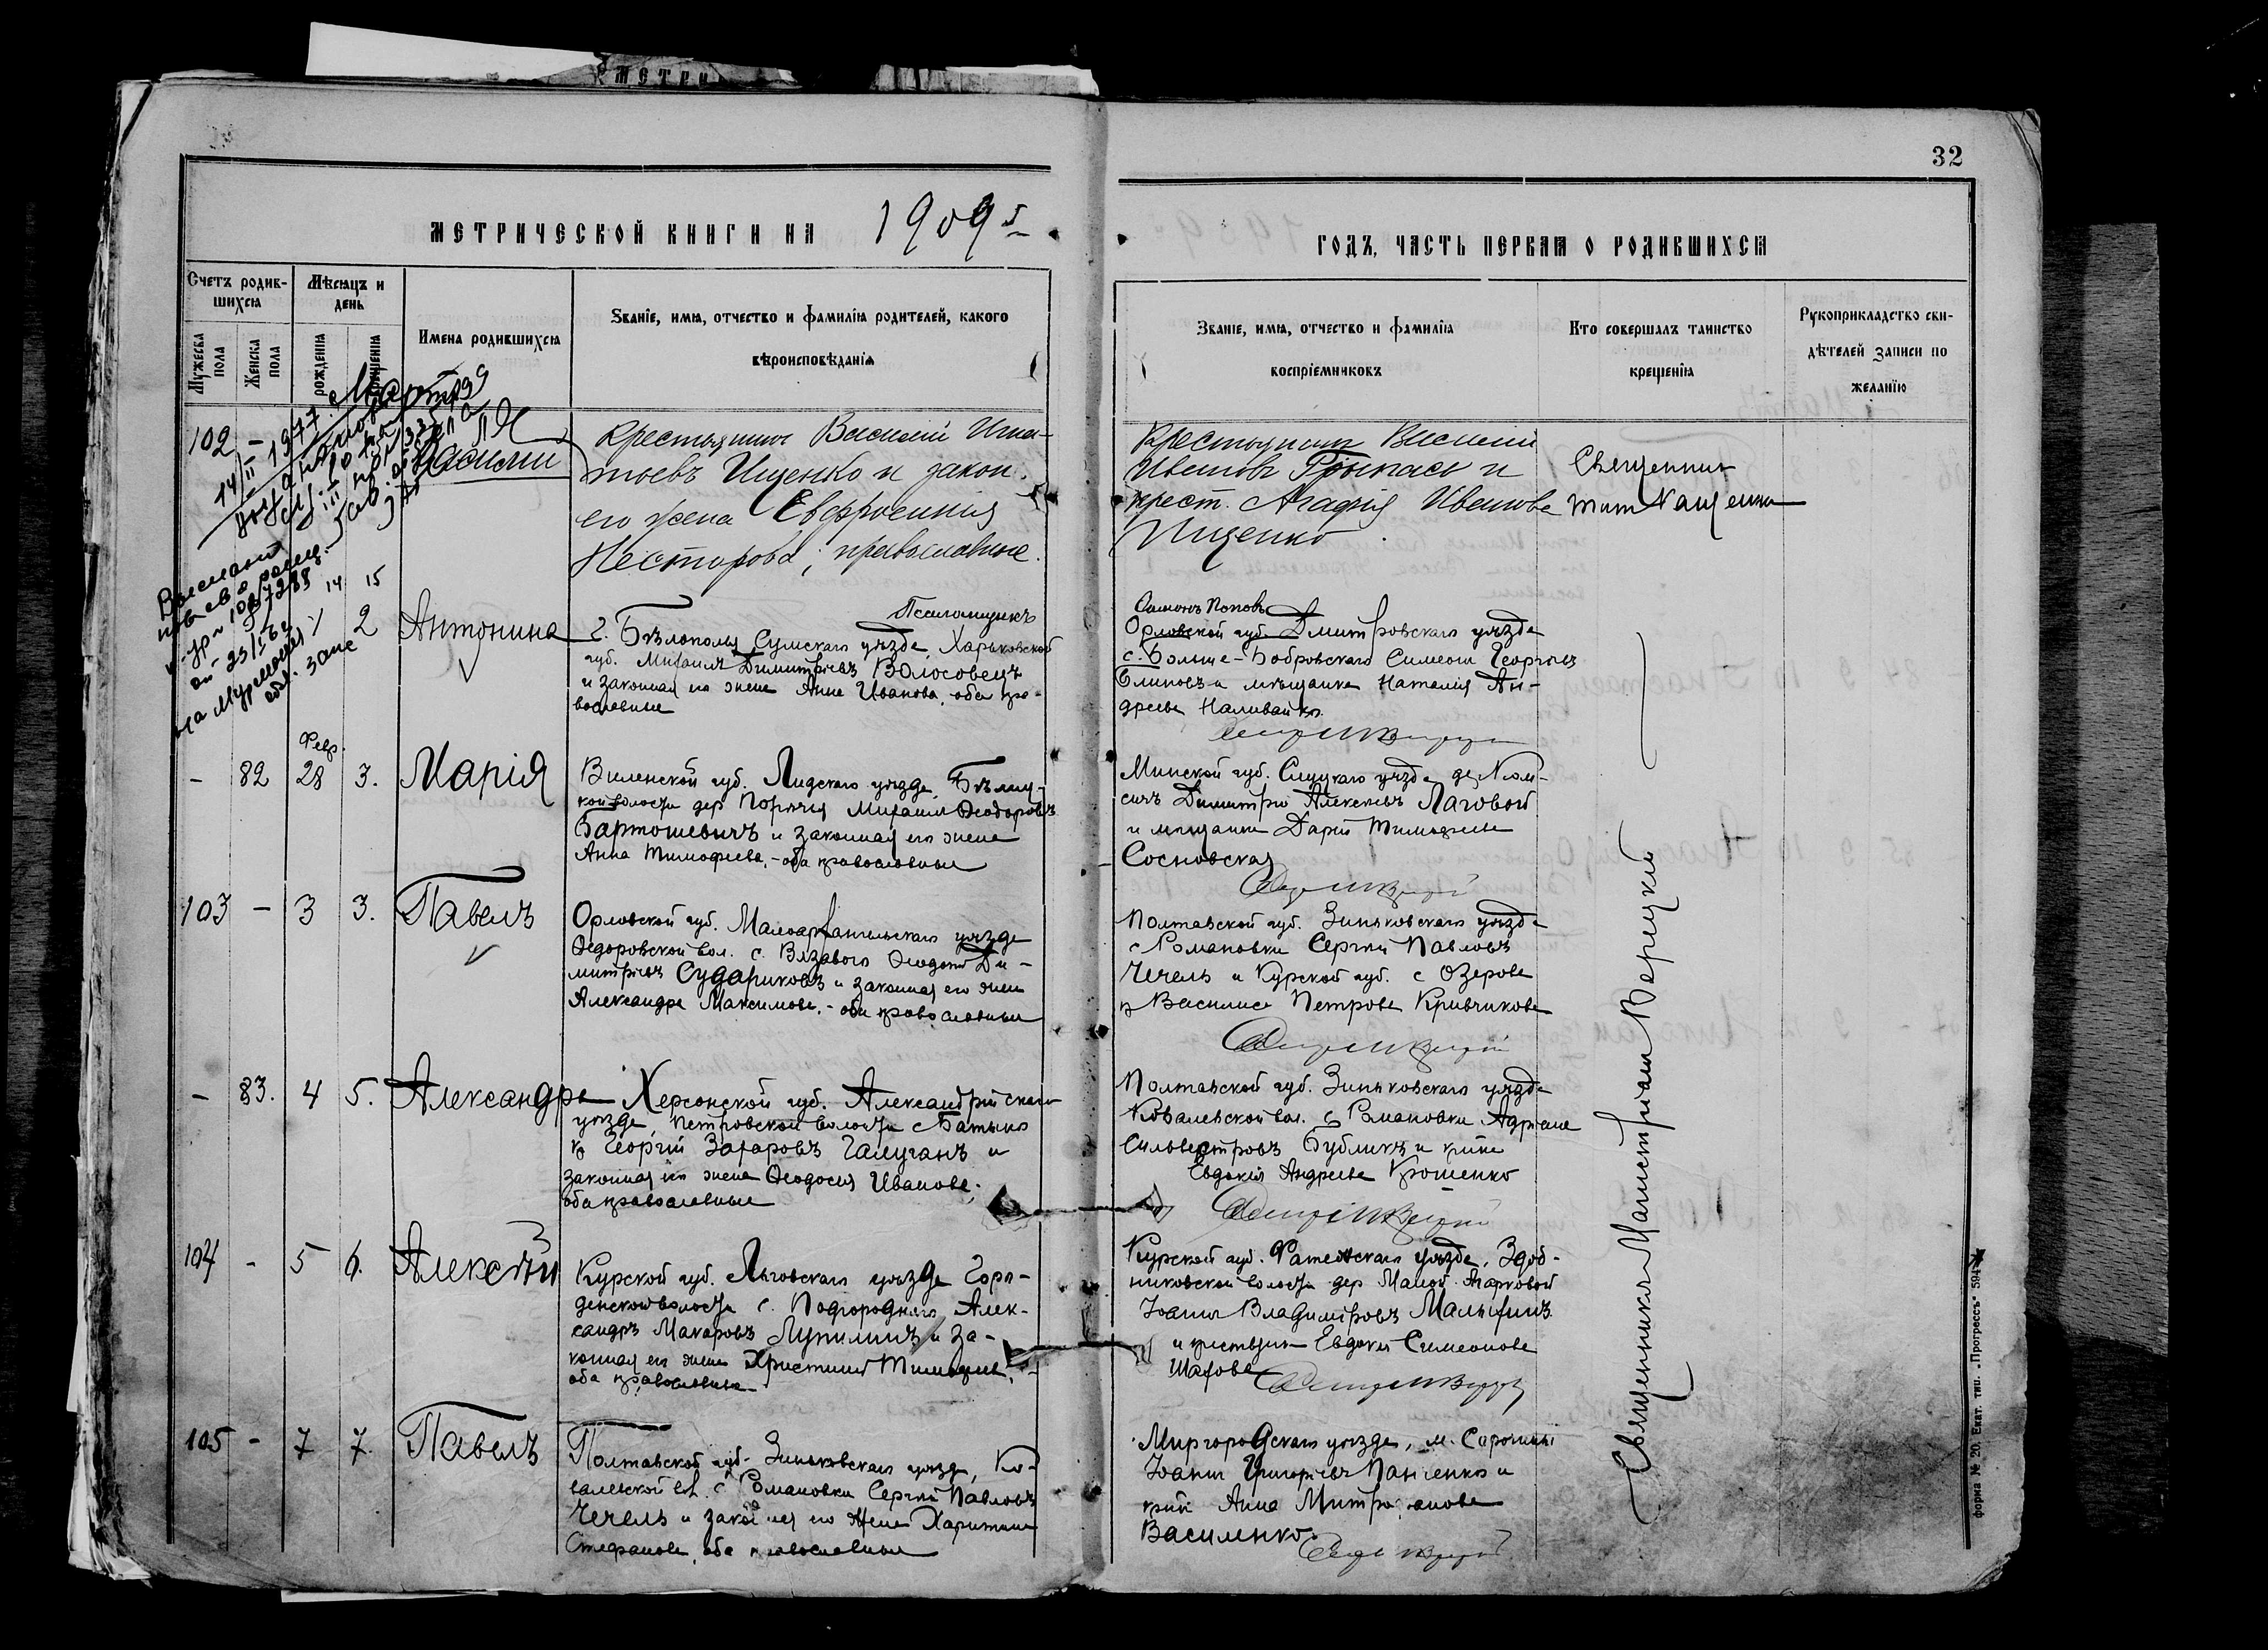 МЕТРИ
32
МЕТРИЧЕСКОЙ КНИГИ НА 1909 г.
ГОДЪ, ЧАСТЬ ПЕРВАЯ О РОДИВШИХСЯ
Счетъ родив-
шихся
Мѣсяцъ и
день
Мужеска пола
Женска пола
рожденія
крещенія
Имена родившихся
Званіе, имя, отчество и фамилія родителей, какого
вѣроисповѣданія
Званіе, имя, отчество и фамилія
воспріемниковъ
Кто совершалъ таинство
крещенія
Рукоприкладство сви-
дѣтелей записи по
желанію
Мартъ
102 -
14/II 1977
Василій
Крестьянинъ Василій Игна-
тьевъ Ищенко и закон.
его жена Евфросинія
Несторова; православные.
Крестьянинъ Василій
Ивановъ и
крест. Агафія Иванова
Ищенко
Священникъ
Титъ
14 15
2 Антонина
Псаломщикъ
г. Бѣлополья Сумскаго уѣзда, Харьковской
губ. Михаилъ Димитріевъ Волосовецъ
и законная его жена Анна Иванова, оба пра-
вославные
Орловской губ. Дмитровскаго уѣзда
с. Больше-Бобровскаго Симеонъ Георгіевъ
Блиновъ и мѣщанка Наталія Ан-
дреева Наливайко.
Февр.
- 82 28 3. Марія
Виленской губ. Лидскаго уѣзда, Бѣлиц-
кой волости дер Порѣчья Михаилъ Ѳеодоровъ
Бартошевичъ и законная его жена
Анна Тимофеева, - оба православные
Минской губ. Слуцкаго уѣзда
Димитрій Алексѣевъ Лаговой
и мѣщанка Дарія Тимофеева
Сосновская
103 - 3 3. Павелъ
Орловской губ. Малоархангельскаго уѣзда
Ѳедоровской вол. с. Вязавого Ѳеодотъ Ди-
митріевъ Судариковъ и законная его жена
Александра Максимова, - оба православные
Полтавской губ. Зиньковскаго уѣзда
с Романовки Сергій Павловъ
Чечель и Курской губ. с Озерова
Василиса Петрова Кривчикова
- 83. 4 5. Александра
Херсонской губ. Александрійскаго
уѣзда, Петровской волости с Батызко
Георгій Захаровъ Галуганъ и
законная его жена Ѳеодосія Иванова,
оба православные
Полтавской губ. Зиньковскаго уѣзда
Ковалевской вол. с Романовки Адріанъ
Сильвестровъ Бубликъ и
Евдокія Андреева Крошенко
104 - 5 6. Алексѣй
Курской губ. Льговскаго уѣзда Горо-
денской волости с. Подгороднаго Алек-
сандръ Макаровъ Лупилинъ и за-
конная его жена Христина Тимофеева,
оба православные
Курской губ. Фатежскаго уѣзда,
волости дер Малой Агарковой
Іоаннъ Владиміровъ Малыхинъ
и Евдокія Симеонова
Шахова
105 - 7 7. Павелъ
Полтавской губ. Зиньковскаго уѣзда, Ко-
валевской вол. с Романовки Сергій Павловъ
Чечель и законная его жена Харитина
Стефанова, оба православные
Миргородскаго уѣзда, м. Сорочинцы
Іоаннъ Григорьевъ Панченко и
Анна Митрофанова
Василенко
Священникъ Магистріанъ Верецкій
форма № 20. Екат. тип. „Прогрессъ" 594